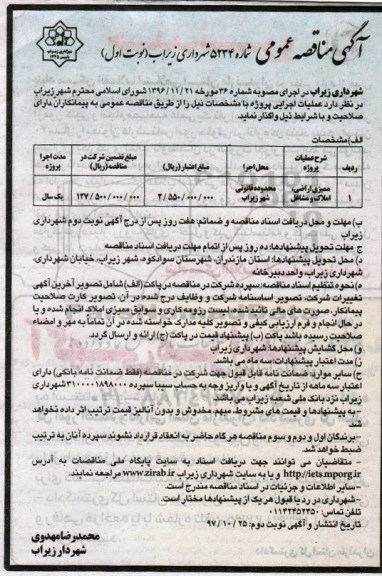 آگهی مناقصه عمومی شماره ۵۲۳۴ شهرداری زیراب (نوبت اول)
شهرداری زیراب در اجرای مصوبه شماره ۳۶ مورخه ۱۳۹۶/۱۱/۲۱ شورای اسلامی محترم شهر زیراب
در نظر دارد عملیات اجرایی پروژه با مشخصات ذیل را از طریق مناقصه عمومی به پیمانکاران دارای
صلاحیت و با شرایط ذیل واگذار نماید.
الف) مشخصات
ردیف شرح عملیات پروژه محل اجرا مبلغ اعتبار (ریال) مبلغ تضمین شرکت در مناقصه (ریال) مدت اجرا پروژه
۱ ممیزی اراضی، املاک و مشاغل محدوده قانونی شهر زیراب ۲/۵۵۰/۰۰۰/۰۰۰ ۱۳۷/۵۰۰/۰۰۰ یک سال
ب) مهلت و محل دریافت اسناد مناقصه و ضمائم: هفت روز پس از درج آگهی نوبت دوم شهرداری
زیراب
ج) مهلت تحویل پیشنهادها: ده روز پس از اتمام مهلت دریافت اسناد مناقصه
د) محل تحویل پیشنهادها: استان مازندران، شهرستان سوادکوه، شهر زیراب، خیابان شهرداری،
شهرداری زیراب، واحد دبیرخانه
ه) نحوه تنظیم اسناد مناقصه: سپرده شرکت در مناقصه در پاکت (الف) شامل تصویر آخرین آگهی
تغییرات شرکت، تصویر اساسنامه شرکت و وظایف درج شده در آن، تصویر کارت صلاحیت
پیمانکار، صورت های مالی تائید شده، لیست رزومه کاری و سوابق ممیزی املاک انجام شده و یا
در حال انجام و فرم ارزیابی کیفی و تصویر کلیه مدارک خواسته شده در آن تماماً به مهر و امضاء
صلاحیت رسیده باشد پاکت (ب) پیشنهاد قیمت در پاکت (ج) ارائه و ارسال گردد.
و) محل گشایش پیشنهادها: شهرداری زیراب
ز) مدت اعتبار پیشنهادات: سه ماه می باشد.
ح) سایر موارد: ضمانت نامه قابل قبول جهت شرکت در مناقصه (فقط ضمانت نامه بانکی) دارای
اعتبار سه ماهه از تاریخ آگهی و یا واریز وجه به حساب سیبا سپرده ۳۱۰۰۰۰۱۸۹۸۰۰۰ شهرداری
زیراب نزد بانک ملی شعبه زیراب می باشد
- به پیشنهادها و قیمت های مشروط، مبهم، مخدوش و بدون آنالیز قیمت ترتیب اثر داده نخواهد
شد.
- برندگان اول و دوم و سوم مناقصه هر گاه حاضر به انعقاد قرارداد نشوند سپرده آنان به ترتیب
ضبط خواهد شد.
- متقاضیان می توانند جهت دریافت اسناد به سایت پایگاه ملی مناقصات به آدرس
http://iets.mporg.ir و یا به سایت شهرداری زیراب www.zirab.ir مراجعه نمایند.
- سایر اطلاعات و جزئیات در اسناد مناقصه مندرج است.
- شهرداری در رد یا قبول هر یک از پیشنهادها مختار است.
تلفن تماس: ۰۱۱۴۲۴۵۲۳۵۰
تاریخ انتشار و آگهی نوبت دوم: ۹۷/۱۰/۲۵
محمدرضا مهدوی
شهردار زیراب